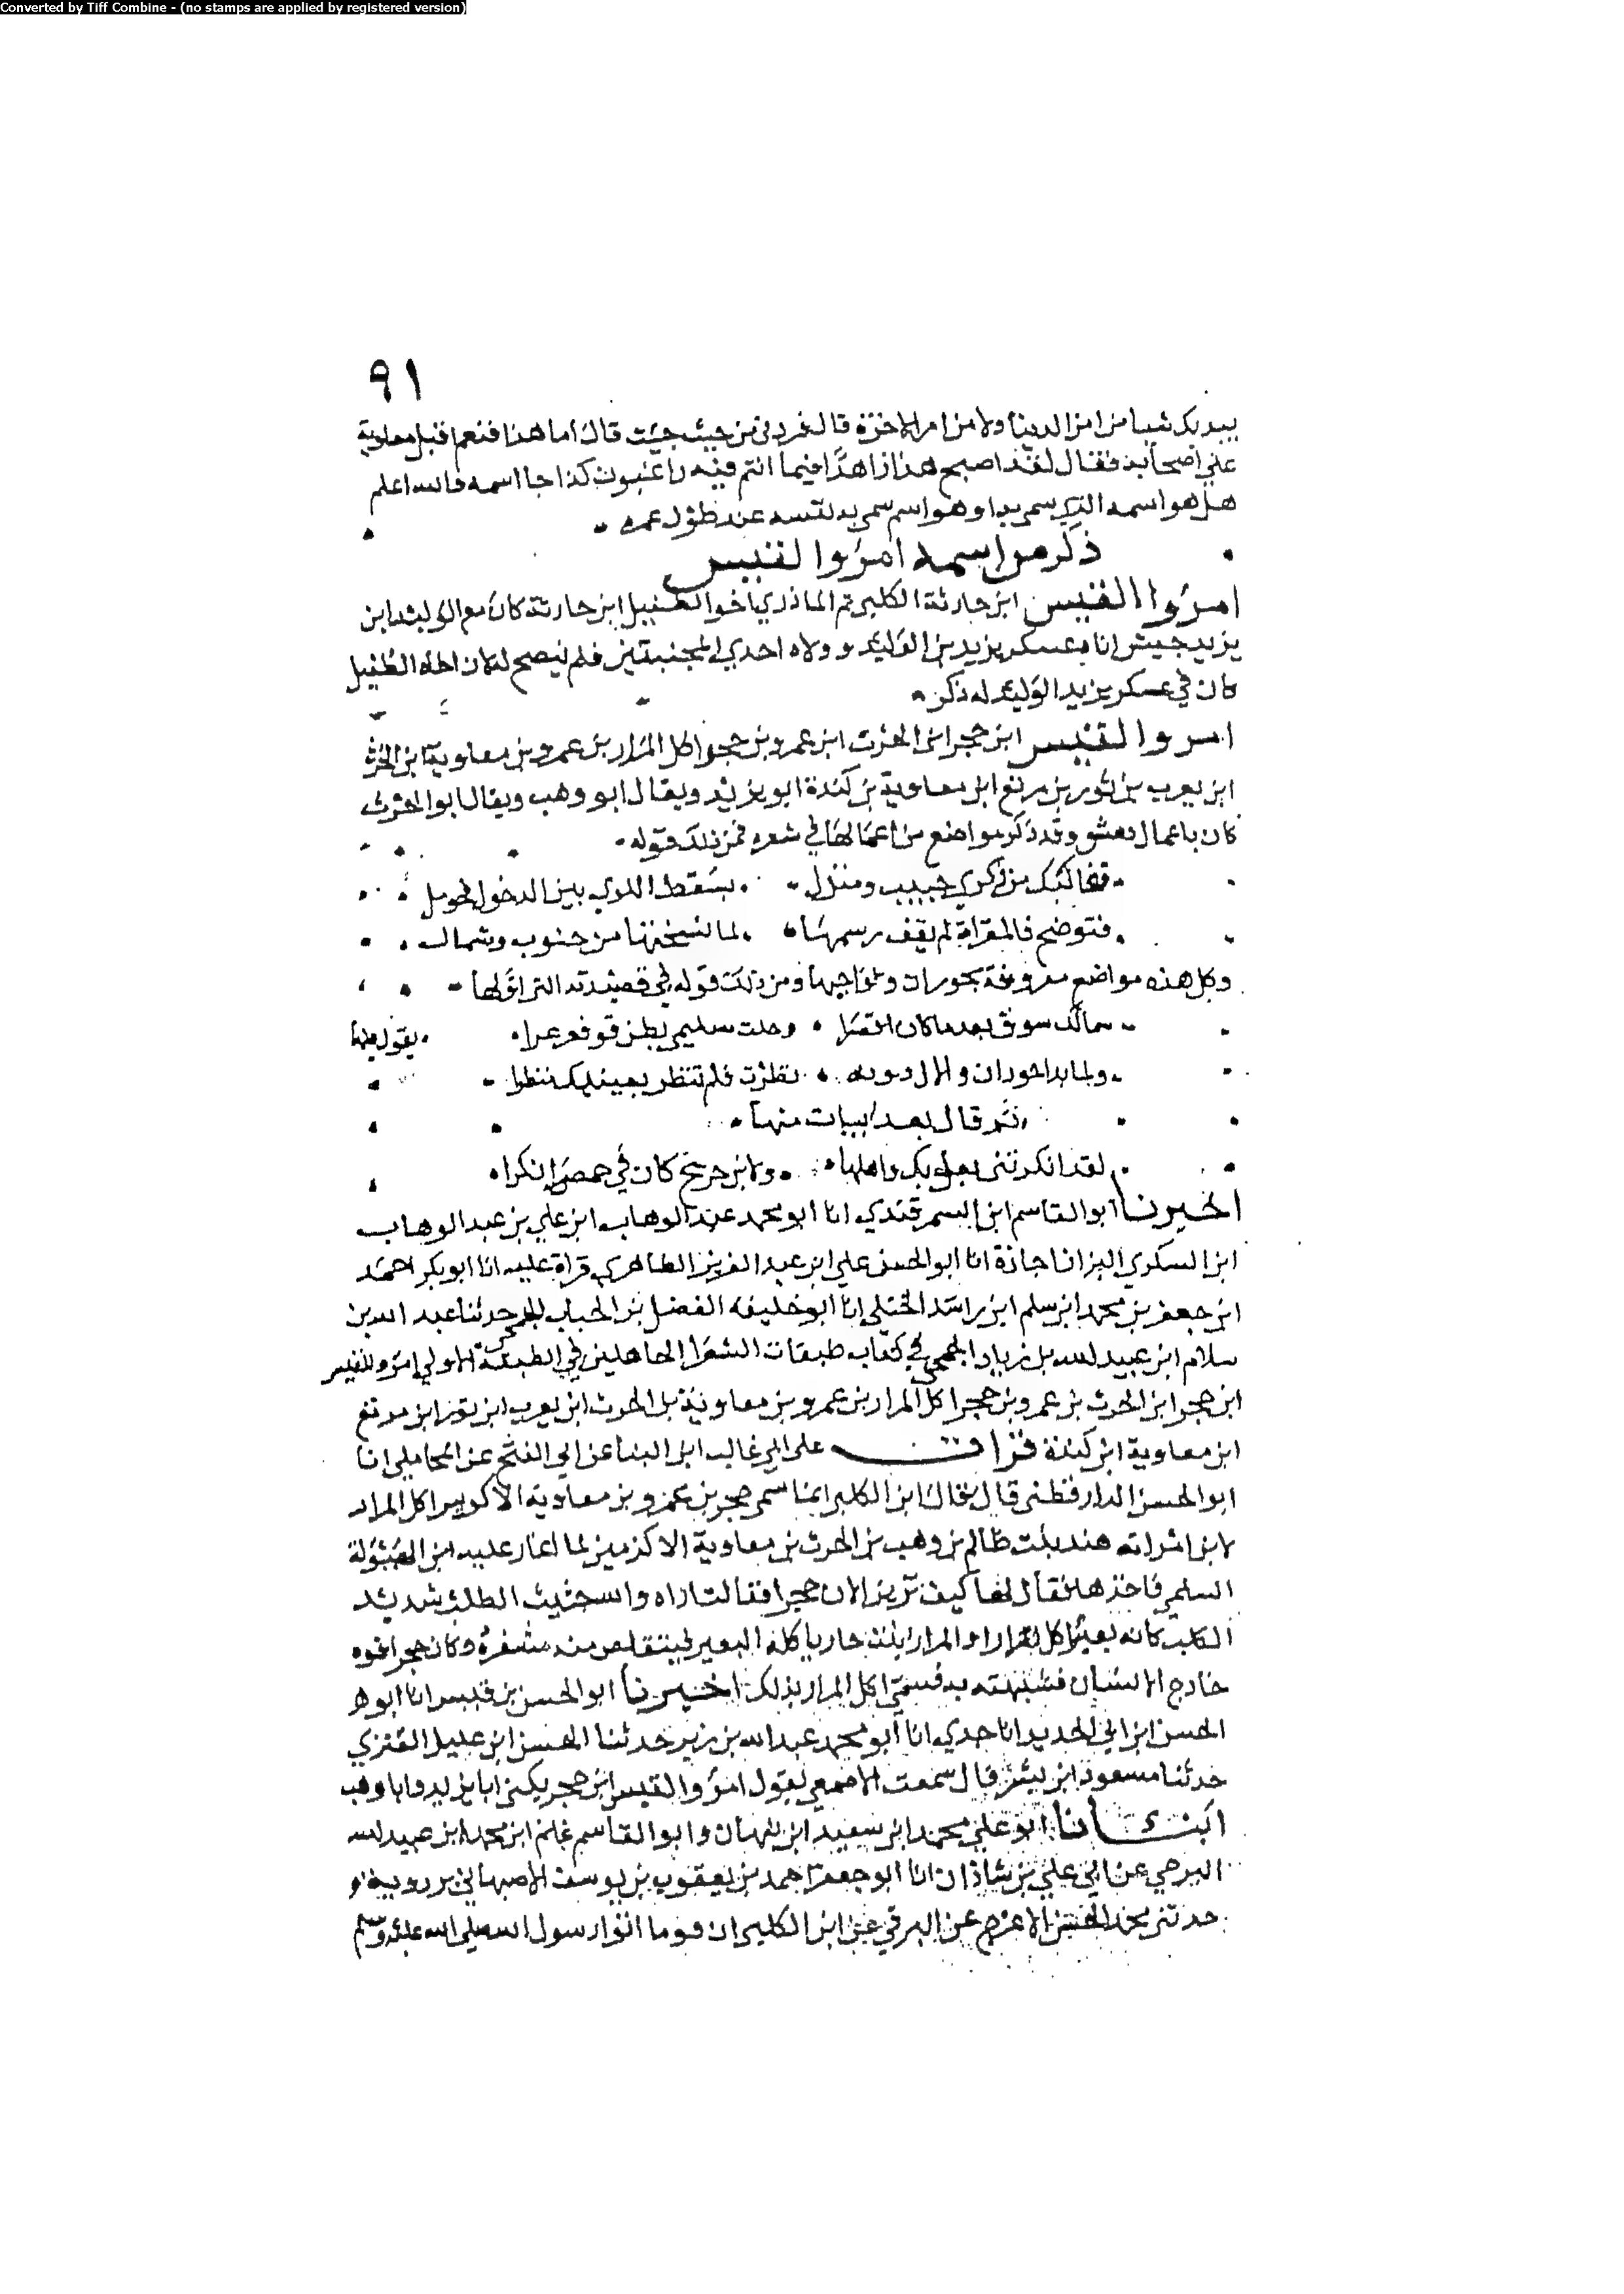 Converted by Tiff Combine - (no stamps are applied by registered version)
٩١
بيديك شيا من امر الدنيا ولا من امر الاخرة قال فردني من حيث جيت قال اما هذا فنعم اقبل معاوية
علي اصحابه فقال لقد اصبح هذا زاهدا فيما انتم فيه راغبون كذا جا اسمه والله اعلم
هل هو اسمه الذي سمي به او هو اسم سمي به نفسه عند طول عمره
ذكر من اسمه امرؤا القيس
امرؤا القيس ابن حارثة الكلبي ثم الماذري اخوا الطفيل ابن حارثة كان مع الوليد ابن
يزيد جيش اتاه عسكر يزيد بن الوليد وولاه احدي المجنبتين فلم ينصح له لان اخاه الطفيل
كان في عسكر يزيد الوليد له ذكر
امروا القيس ابن حجر ابن الحرث ابن عمرو بن حجر اكل المرار بن عمرو بن معاوية ابن الحرث
ابن يعرب بن ثور بن مرتع ابن معاوية بن كندة ابو يزيد ويقال ابو وهب ويقال ابو الحرث
كان باعمال دمشق وقد ذكر مواضع من اعمالها في شعره فمن ذلك قوله
قفا نبك من ذكري حبيب ومنزل بسقط اللوي بين الدخول فحومل
فتوضح فالمقراة لم يعف رسمها لما نسجتها من جنوب وشمال
وكل هذه مواضع معروفة بحوران ونواحيها ومن ذلك قوله في قصيدته التي اولها
سمالك سوق بعدما كان اقصرا وحلت سليمي بطن قو فعرعرا يقول فيها
ولما بدا حوران والال دونه نظرت فلم تنظر بعينيك منظرا
ثم قال بعد ابيات منها
لقد انكرتني بعلبك واهلها ولابن جريج كان في حمص انكرا
اخبرنا ابو القاسم ابن السمرقندي انا ابو محمد عبد الوهاب ابن علي بن عبد الوهاب
ابن السكري البزاز اجازة انا ابو الحسن علي ابن عبد العزيز الطاهري قراة عليه انا ابو بكر احمد
ابن جعفر بن محمد ابن سلم ابن راشد الختلي انا ابو خليفة الفضل بن الحباب الجمحي حدثنا عبد الله بن
سلام ابن عبيد الله بن زياد الجمحي في كتاب طبقات الشعرا الجاهلين في الطبقة الاولي امرو القيس
ابن حجر ابن الحرث بن عمرو بن حجر اكل المرار بن عمرو بن معاوية بن الحرث ابن يعرب ابن ثور ابن مرتع
ابن معاوية ابن كندة قرات علي ابي غالب ابن البنا عن ابي الفتح عن المحاملي انا
ابو الحسن الدارقطني قال قال ابن الكلبي انما سمي حجر بن عمرو بن معاوية الاكرمين اكل المرار
لان امراته هند بنت ظالم بن وهب بن الحرث بن معاوية الاكرمين لما اغار عليه ابن الهبولة
السلمي فاخذها فقال لها كيف ترين الان حجر افقالت اراه والله حثيث الطلب شديد
الكلب كانه بعير اكل مرارا والمرار نبت حار ياكله البعير فيتقلص منه مشفره وكان حجر افوه
خارج الاسنان فشبهته به فسمي اكل المرار بذلك اخبرنا ابو الحسن بن قبيس انا ابو
الحسن ابن ابي الحديد انا جدي انا ابو محمد عبد الله بن زبر حدثنا الحسن ابن عليل العنزي
حدثنا مسعود ابن بشر قال سمعت الاصمعي يقول امرؤ القيس ابن حجر يكني ابا يزيد وابا وهب
انبانا ابو علي محمد ابن سعيد ابن نبهان وابو القاسم غانم ابن محمد ابن عبيد الله
البرجي عن ابي علي بن شاذان انا ابو جعفر احمد بن يعقوب بن يوسف الاصبهاني برزويه
حدثني محمد الاعرج عن البرقي عن ابن الكلبي ان قوما اتوا رسول الله صلي الله عليه وسلم